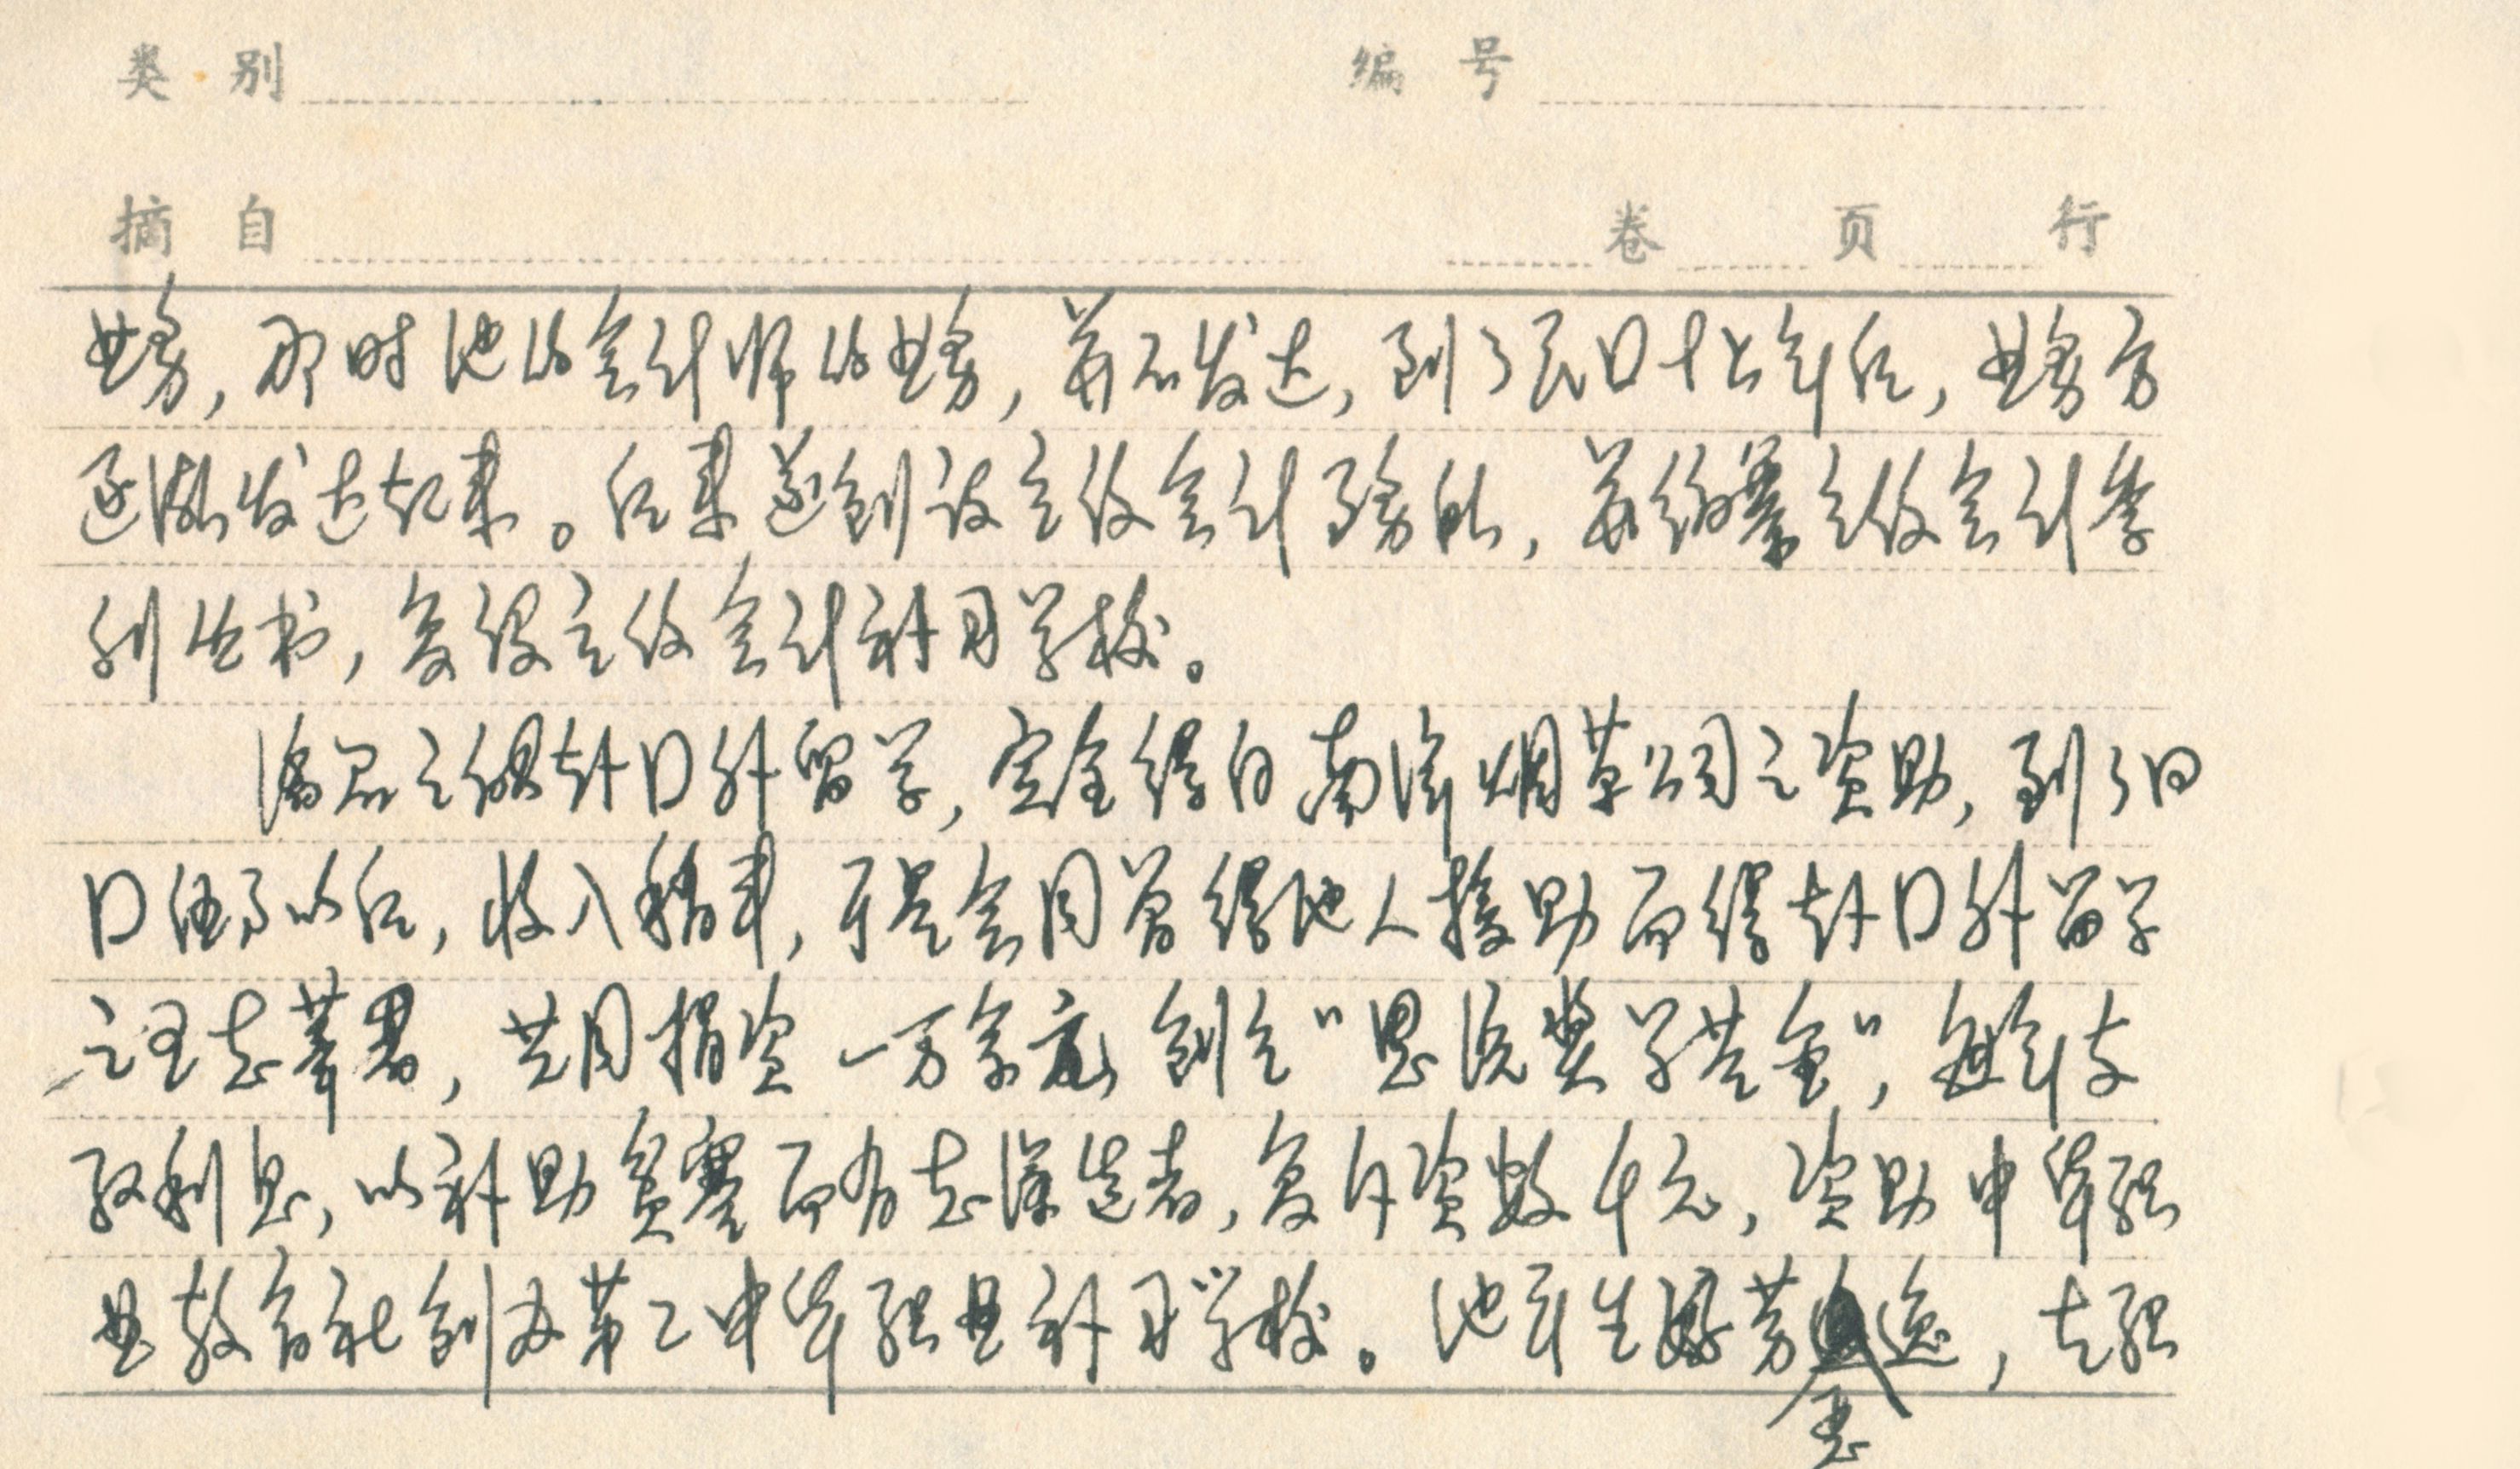 类别 编号
摘自 卷 页 行
业务,那时他的会计师的业务,并不发达,到了民囗十七年后,业务方
逐渐发达起来。后来遂创设立信会计事务所,并编纂立信会计季
刊丛书,复设立信会计补习学校。
潘君之得赴囗外留学,完全得自南洋烟草公司之资助,到了回
囗任事以后,收入稍丰,于是会同曾得他人援助而得赴囗外留学
之同志等君,共同捐资一万余元,创立“思源奖学基金”,每年支
取利息,以补助贫寒而有志深造者,复斥资数千元,资助中华职
业教育社创办第二中华职业补习学校。他平生好劳恶逸,尤强